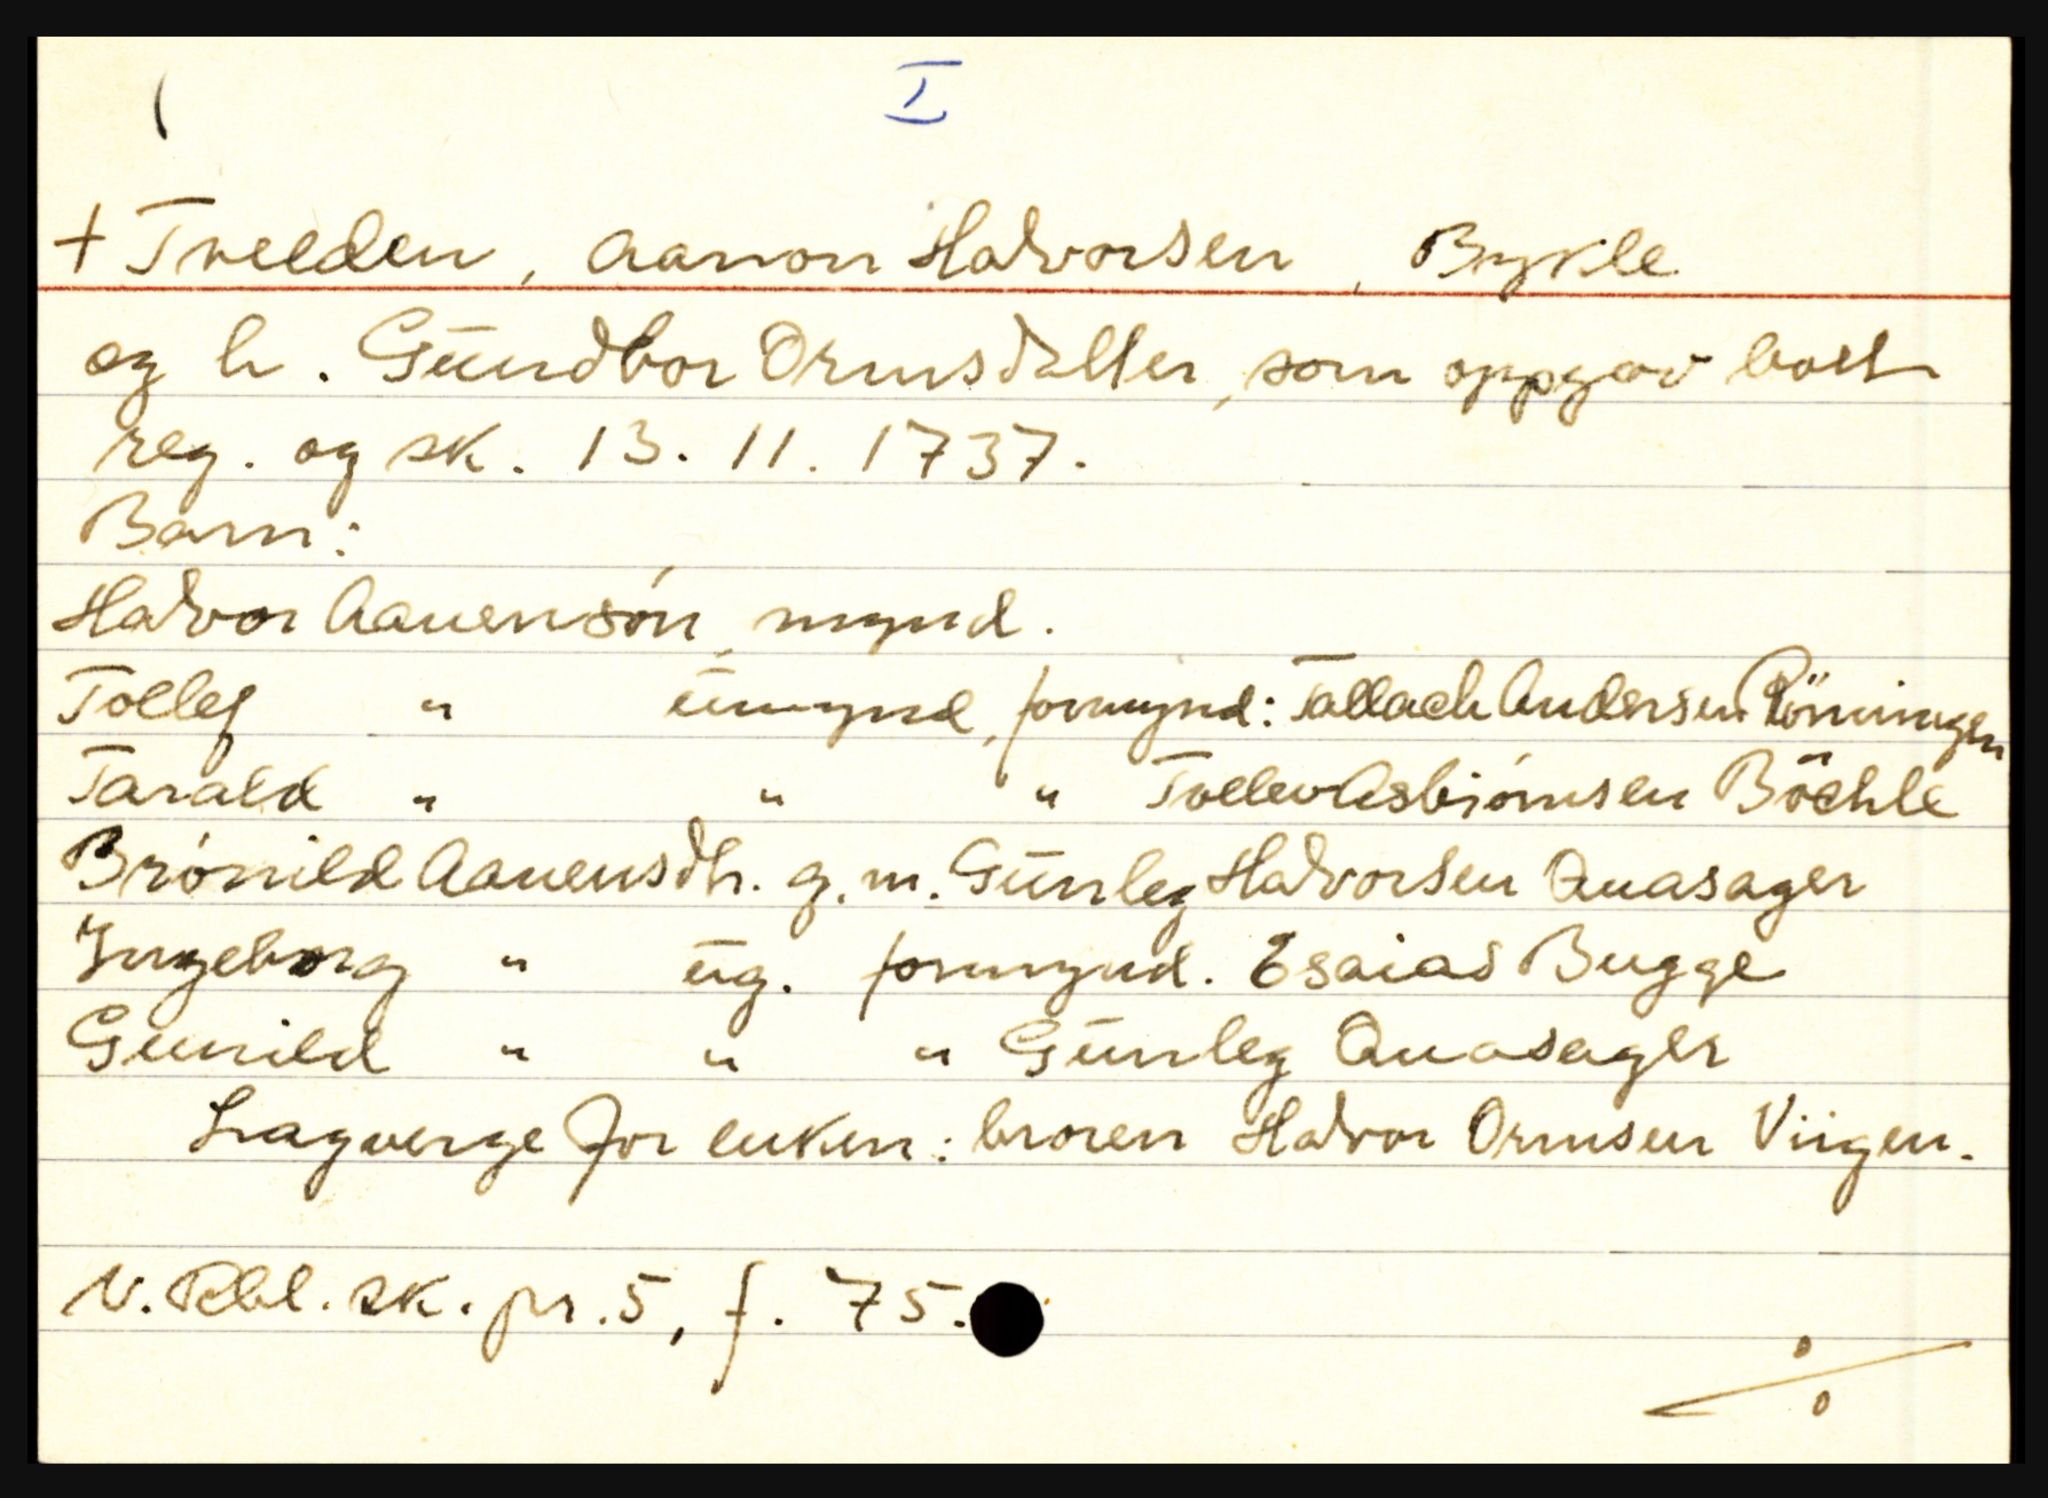 I
+ Tveiden, Aanon Halvorsen, Bykle
og h. Gundbor Ormsdatter, som oppgav boet
reg. og sk. 13. 11. 1737.
Barn:
Halvor Aanensón, mynd.
Tolleg " umynd, formynd: Tallach Andersen Röningen
Tarald " " " Tollev Asbiórnsen Böchle
Brónild Aanensdtr. g. m. Gunleg Halvorsen Quasager
Ingeborg " ug. formynd. Esaias Bugge
Gunild " " " Gunleg Quasager
Lagverge for enken: broren Halvor Ormsen Viigen.
N. Rbl. sk. pr. 5, f. 75.